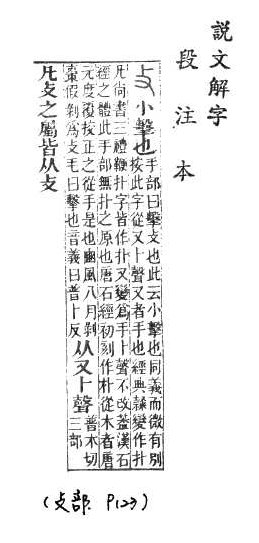 說文解字
段注本
攴小擊也
手部曰擊攴也此云小擊也同義而微有別
按此字從又卜聲又者手也經典隸變作扑
凡尚書三禮鞭扑字皆作扑又變爲手卜聲不改葢漢石
經之體此手部無扑之原也唐石經初刻作朴從木者唐
元度覆挍正之從手是也豳風八月剝
棗假剝爲攴毛曰擊也音義曰普卜反
从又卜聲
普木切
三部
凡攴之屬皆从攴
(攴部 P123)